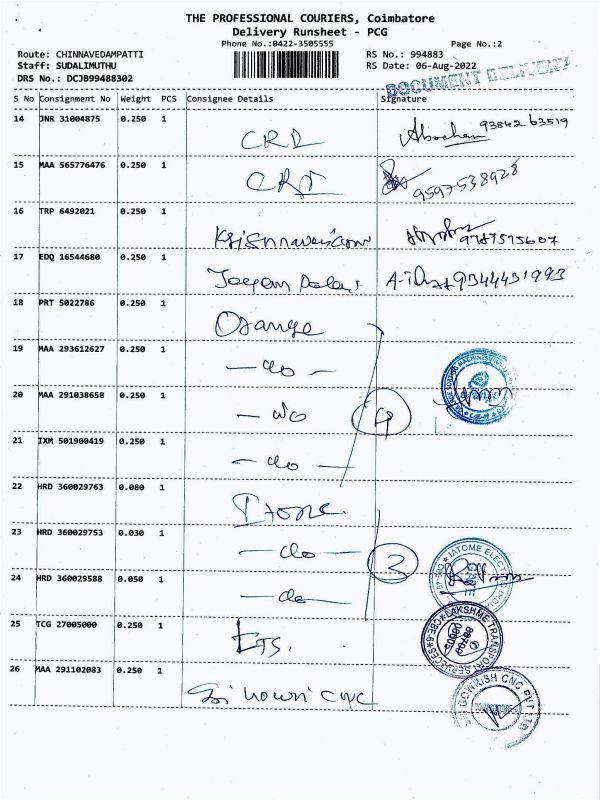 THE PROFESSIONAL COURIERS, Coimbatore
Delivery Runsheet - PCG
Phone No.:0422-3505555
Page No.:2
Route: CHINNAVEDAMPATTI
RS No.: 994883
Staff: SUDALIMUTHU
RS Date: 06-Aug-2022
DRS No.: DCJB99488302
DOCUMENT DELIVERY
S No Consignment No Weight PCS Consignee Details Signature
14 JNR 31004875 0.250 1 93842 63519
15 MAA 565776476 0.250 1 9597538928
16 TRP 6492021 0.250 1 9787575607
17 EDQ 16544680 0.250 1 9344431993
18 PRT 5022786 0.250 1 Orange
19 MAA 293612627 0.250 1 - do -
20 MAA 291038658 0.250 1 - do 4
21 IXM 501900419 0.250 1 - do -
22 HRD 360029763 0.080 1
23 HRD 360029753 0.030 1 - do - 3
24 HRD 360029588 0.050 1 - do -
25 TCG 27005000 0.250 1 ETS.
26 MAA 291102083 0.250 1 CNC
IATOME ELECTRIC
LAKSHME TRANSPORT SERVICES
SRI GOWRISH CNC PVT LTD